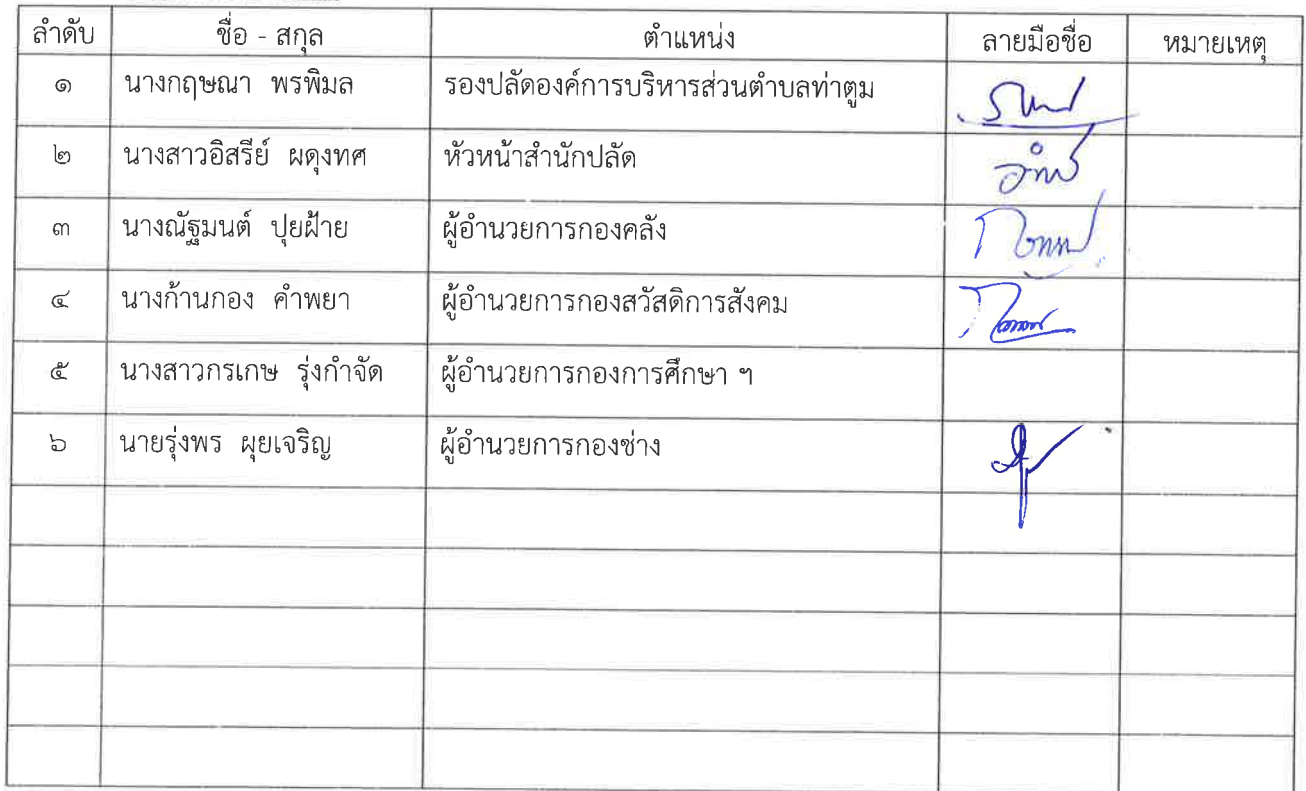 ลำดับ ชื่อ - สกุล ตำแหน่ง ลายมือชื่อ หมายเหตุ
๑ นางกฤษณา พรพิมล รองปลัดองค์การบริหารส่วนตำบลท่าตูม
๒ นางสาวอิสรีย์ ผดุงทศ หัวหน้าสำนักปลัด
๓ นางณัฐมนต์ ปุยฝ้าย ผู้อำนวยการกองคลัง
๔ นางก้านกอง คำพยา ผู้อำนวยการกองสวัสดิการสังคม
๕ นางสาวกรเกษ รุ่งกำจัด ผู้อำนวยการกองการศึกษา ฯ
๖ นายรุ่งพร ผุยเจริญ ผู้อำนวยการกองช่าง